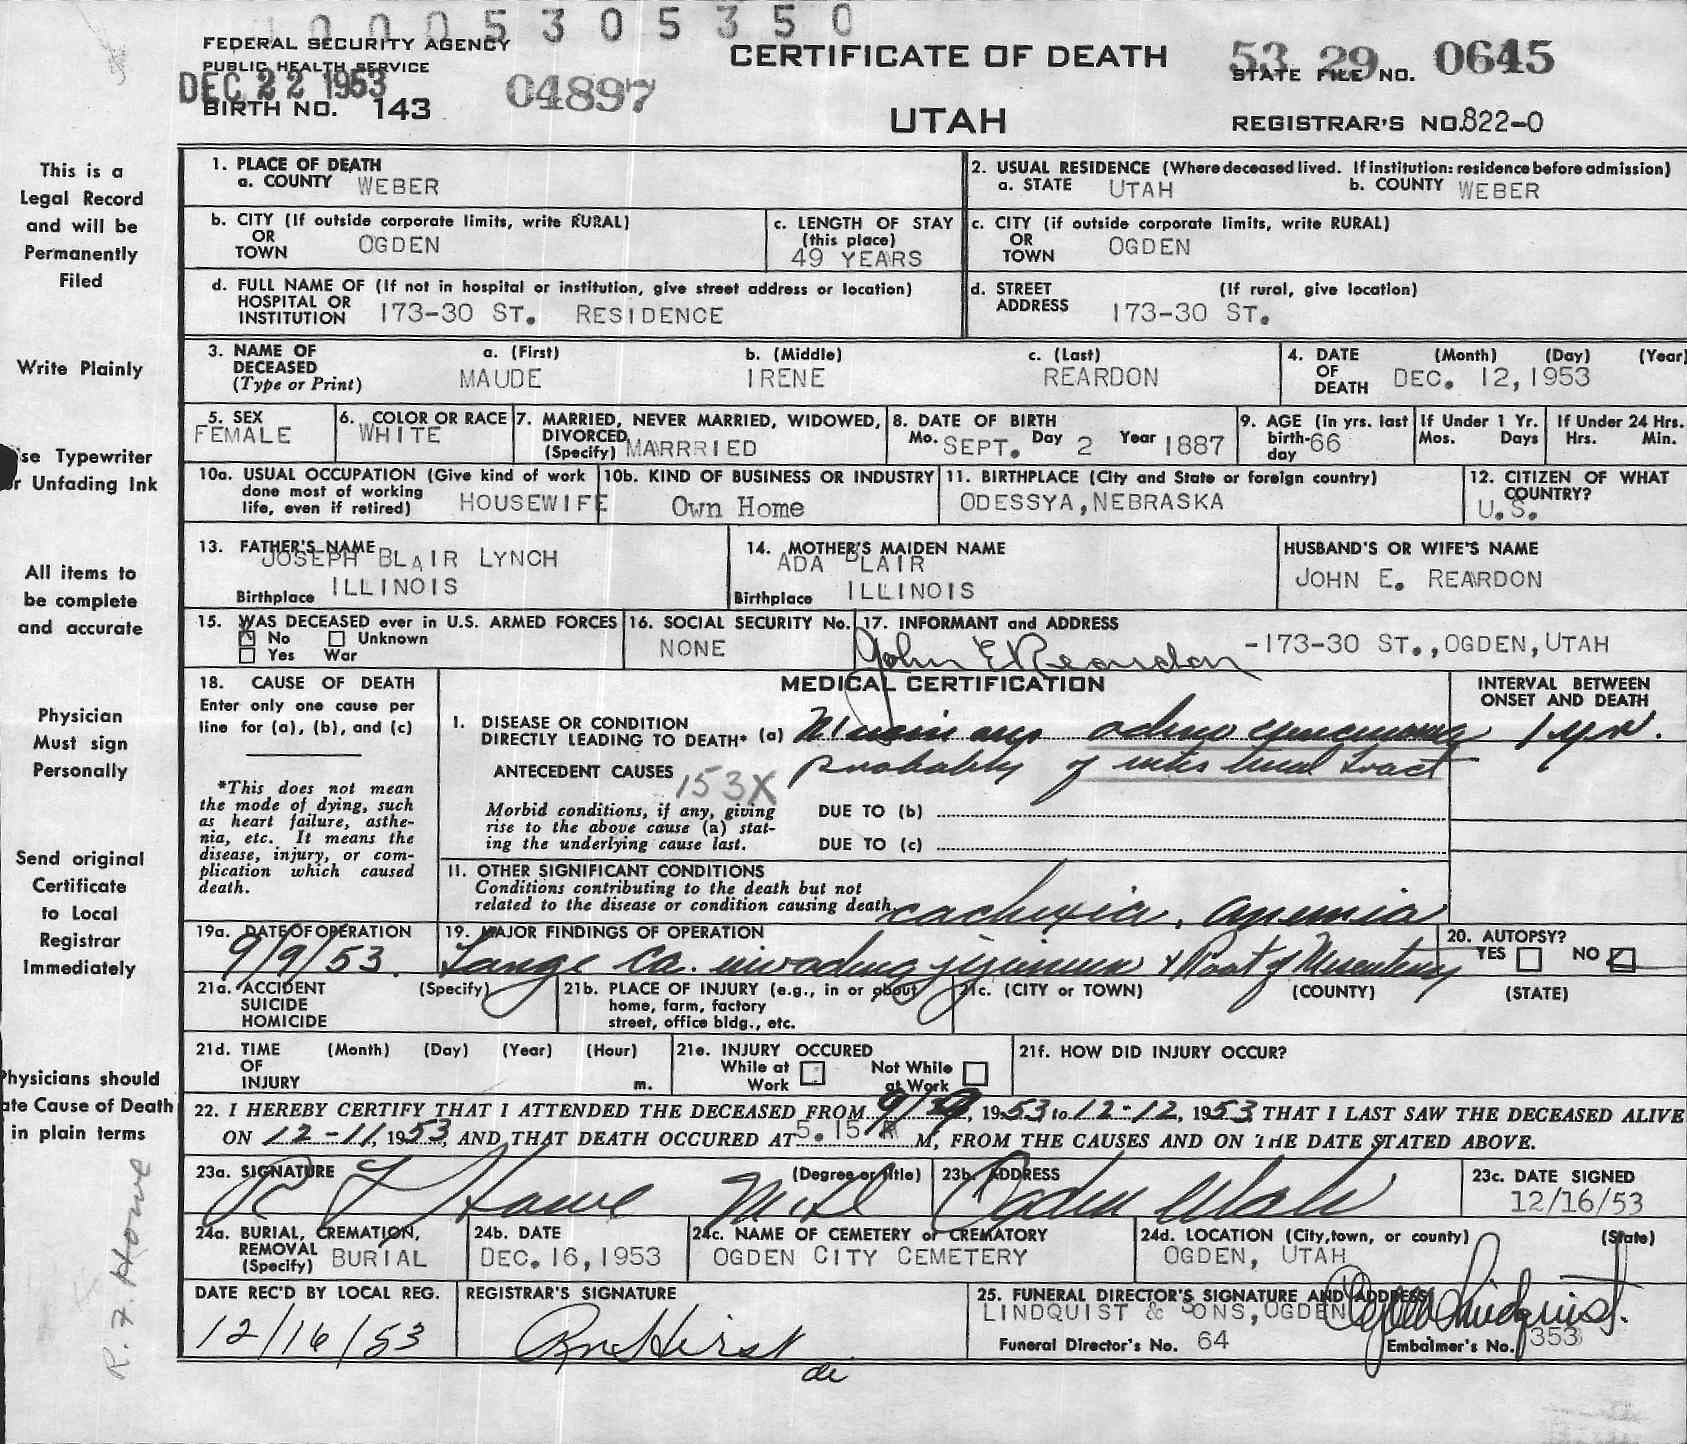 1 0 0 0 5 3 0 5 3 5 0
FEDERAL SECURITY AGENCY
PUBLIC HEALTH SERVICE
DEC 22 1953
BIRTH NO. 143
04897
CERTIFICATE OF DEATH
UTAH
53 29 0645
STATE FILE NO.
REGISTRAR'S NO. 822-0
This is a
Legal Record
and will be
Permanently
Filed
Write Plainly
se Typewriter
or Unfading Ink
All items to
be complete
and accurate
Physician
Must sign
Personally
Send original
Certificate
to Local
Registrar
Immediately
Physicians should
ate Cause of Death
in plain terms
R. F. Howe
1. PLACE OF DEATH
a. COUNTY WEBER
2. USUAL RESIDENCE (Where deceased lived. If institution: residence before admission)
a. STATE UTAH b. COUNTY WEBER
b. CITY (If outside corporate limits, write RURAL)
OR
TOWN OGDEN
c. LENGTH OF STAY
(this place)
49 YEARS
c. CITY (if outside corporate limits, write RURAL)
OR
TOWN OGDEN
d. FULL NAME OF (If not in hospital or institution, give street address or location)
HOSPITAL OR
INSTITUTION 173-30 ST. RESIDENCE
d. STREET (If rural, give location)
ADDRESS 173-30 ST.
3. NAME OF a. (First) b. (Middle) c. (Last)
DECEASED
(Type or Print) MAUDE IRENE REARDON
4. DATE (Month) (Day) (Year)
OF
DEATH DEC. 12,1953
5. SEX
FEMALE
6. COLOR OR RACE
WHITE
7. MARRIED, NEVER MARRIED, WIDOWED,
DIVORCED
(Specify) MARRRIED
8. DATE OF BIRTH
Mo. SEPT. Day 2 Year 1887
9. AGE (in yrs. last
birth-
day 66
If Under 1 Yr.
Mos. Days
If Under 24 Hrs.
Hrs. Min.
10a. USUAL OCCUPATION (Give kind of work
done most of working
life, even if retired) HOUSEWIFE
10b. KIND OF BUSINESS OR INDUSTRY
Own Home
11. BIRTHPLACE (City and State or foreign country)
ODESSYA,NEBRASKA
12. CITIZEN OF WHAT
COUNTRY?
U.S.
13. FATHER'S NAME
JOSEPH BLAIR LYNCH
Birthplace ILLINOIS
14. MOTHER'S MAIDEN NAME
ADA BLAIR
Birthplace ILLINOIS
HUSBAND'S OR WIFE'S NAME
JOHN E. REARDON
15. WAS DECEASED ever in U.S. ARMED FORCES
No Unknown
Yes War
16. SOCIAL SECURITY No.
NONE
17. INFORMANT and ADDRESS
John E Reardon -173-30 ST.,OGDEN,UTAH
18. CAUSE OF DEATH
Enter only one cause per
line for (a), (b), and (c)
*This does not mean
the mode of dying, such
as heart failure, asthe-
nia, etc. It means the
disease, injury, or com-
plication which caused
death.
MEDICAL CERTIFICATION
INTERVAL BETWEEN
ONSET AND DEATH
I. DISEASE OR CONDITION
DIRECTLY LEADING TO DEATH* (a) adeno carcinoma 1 yr.
probably of intestinal tract
ANTECEDENT CAUSES 153X
Morbid conditions, if any, giving
rise to the above cause (a) stat-
ing the underlying cause last.
DUE TO (b)
DUE TO (c)
11. OTHER SIGNIFICANT CONDITIONS
Conditions contributing to the death but not
related to the disease or condition causing death. cachexia, anemia
19a. DATE OF OPERATION
9/9/53.
19. MAJOR FINDINGS OF OPERATION
Large Ca. invading jejunum & Root of Mesentery
20. AUTOPSY?
YES NO
21a. ACCIDENT (Specify)
SUICIDE
HOMICIDE
21b. PLACE OF INJURY (e.g., in or about
home, farm, factory
street, office bldg., etc.
21c. (CITY or TOWN) (COUNTY) (STATE)
21d. TIME (Month) (Day) (Year) (Hour)
OF
INJURY m.
21e. INJURY OCCURED
While at Not While
Work at Work
21f. HOW DID INJURY OCCUR?
22. I HEREBY CERTIFY THAT I ATTENDED THE DECEASED FROM 9/9, 1953 to 12-12, 1953, THAT I LAST SAW THE DECEASED ALIVE
ON 12-11, 1953, AND THAT DEATH OCCURED AT 5.15 M, FROM THE CAUSES AND ON THE DATE STATED ABOVE.
23a. SIGNATURE (Degree or title)
R F Howe M.D
23b. ADDRESS
Ogden Utah
23c. DATE SIGNED
12/16/53
24a. BURIAL, CREMATION,
REMOVAL
(Specify) BURIAL
24b. DATE
DEC.16,1953
24c. NAME OF CEMETERY or CREMATORY
OGDEN CITY CEMETERY
24d. LOCATION (City,town, or county) (State)
OGDEN, UTAH
DATE REC'D BY LOCAL REG.
12/16/53
REGISTRAR'S SIGNATURE
Hirst
de
25. FUNERAL DIRECTOR'S SIGNATURE AND ADDRESS
LINDQUIST & SONS,OGDEN Lindquist.
Funeral Director's No. 64
Embalmer's No. 353